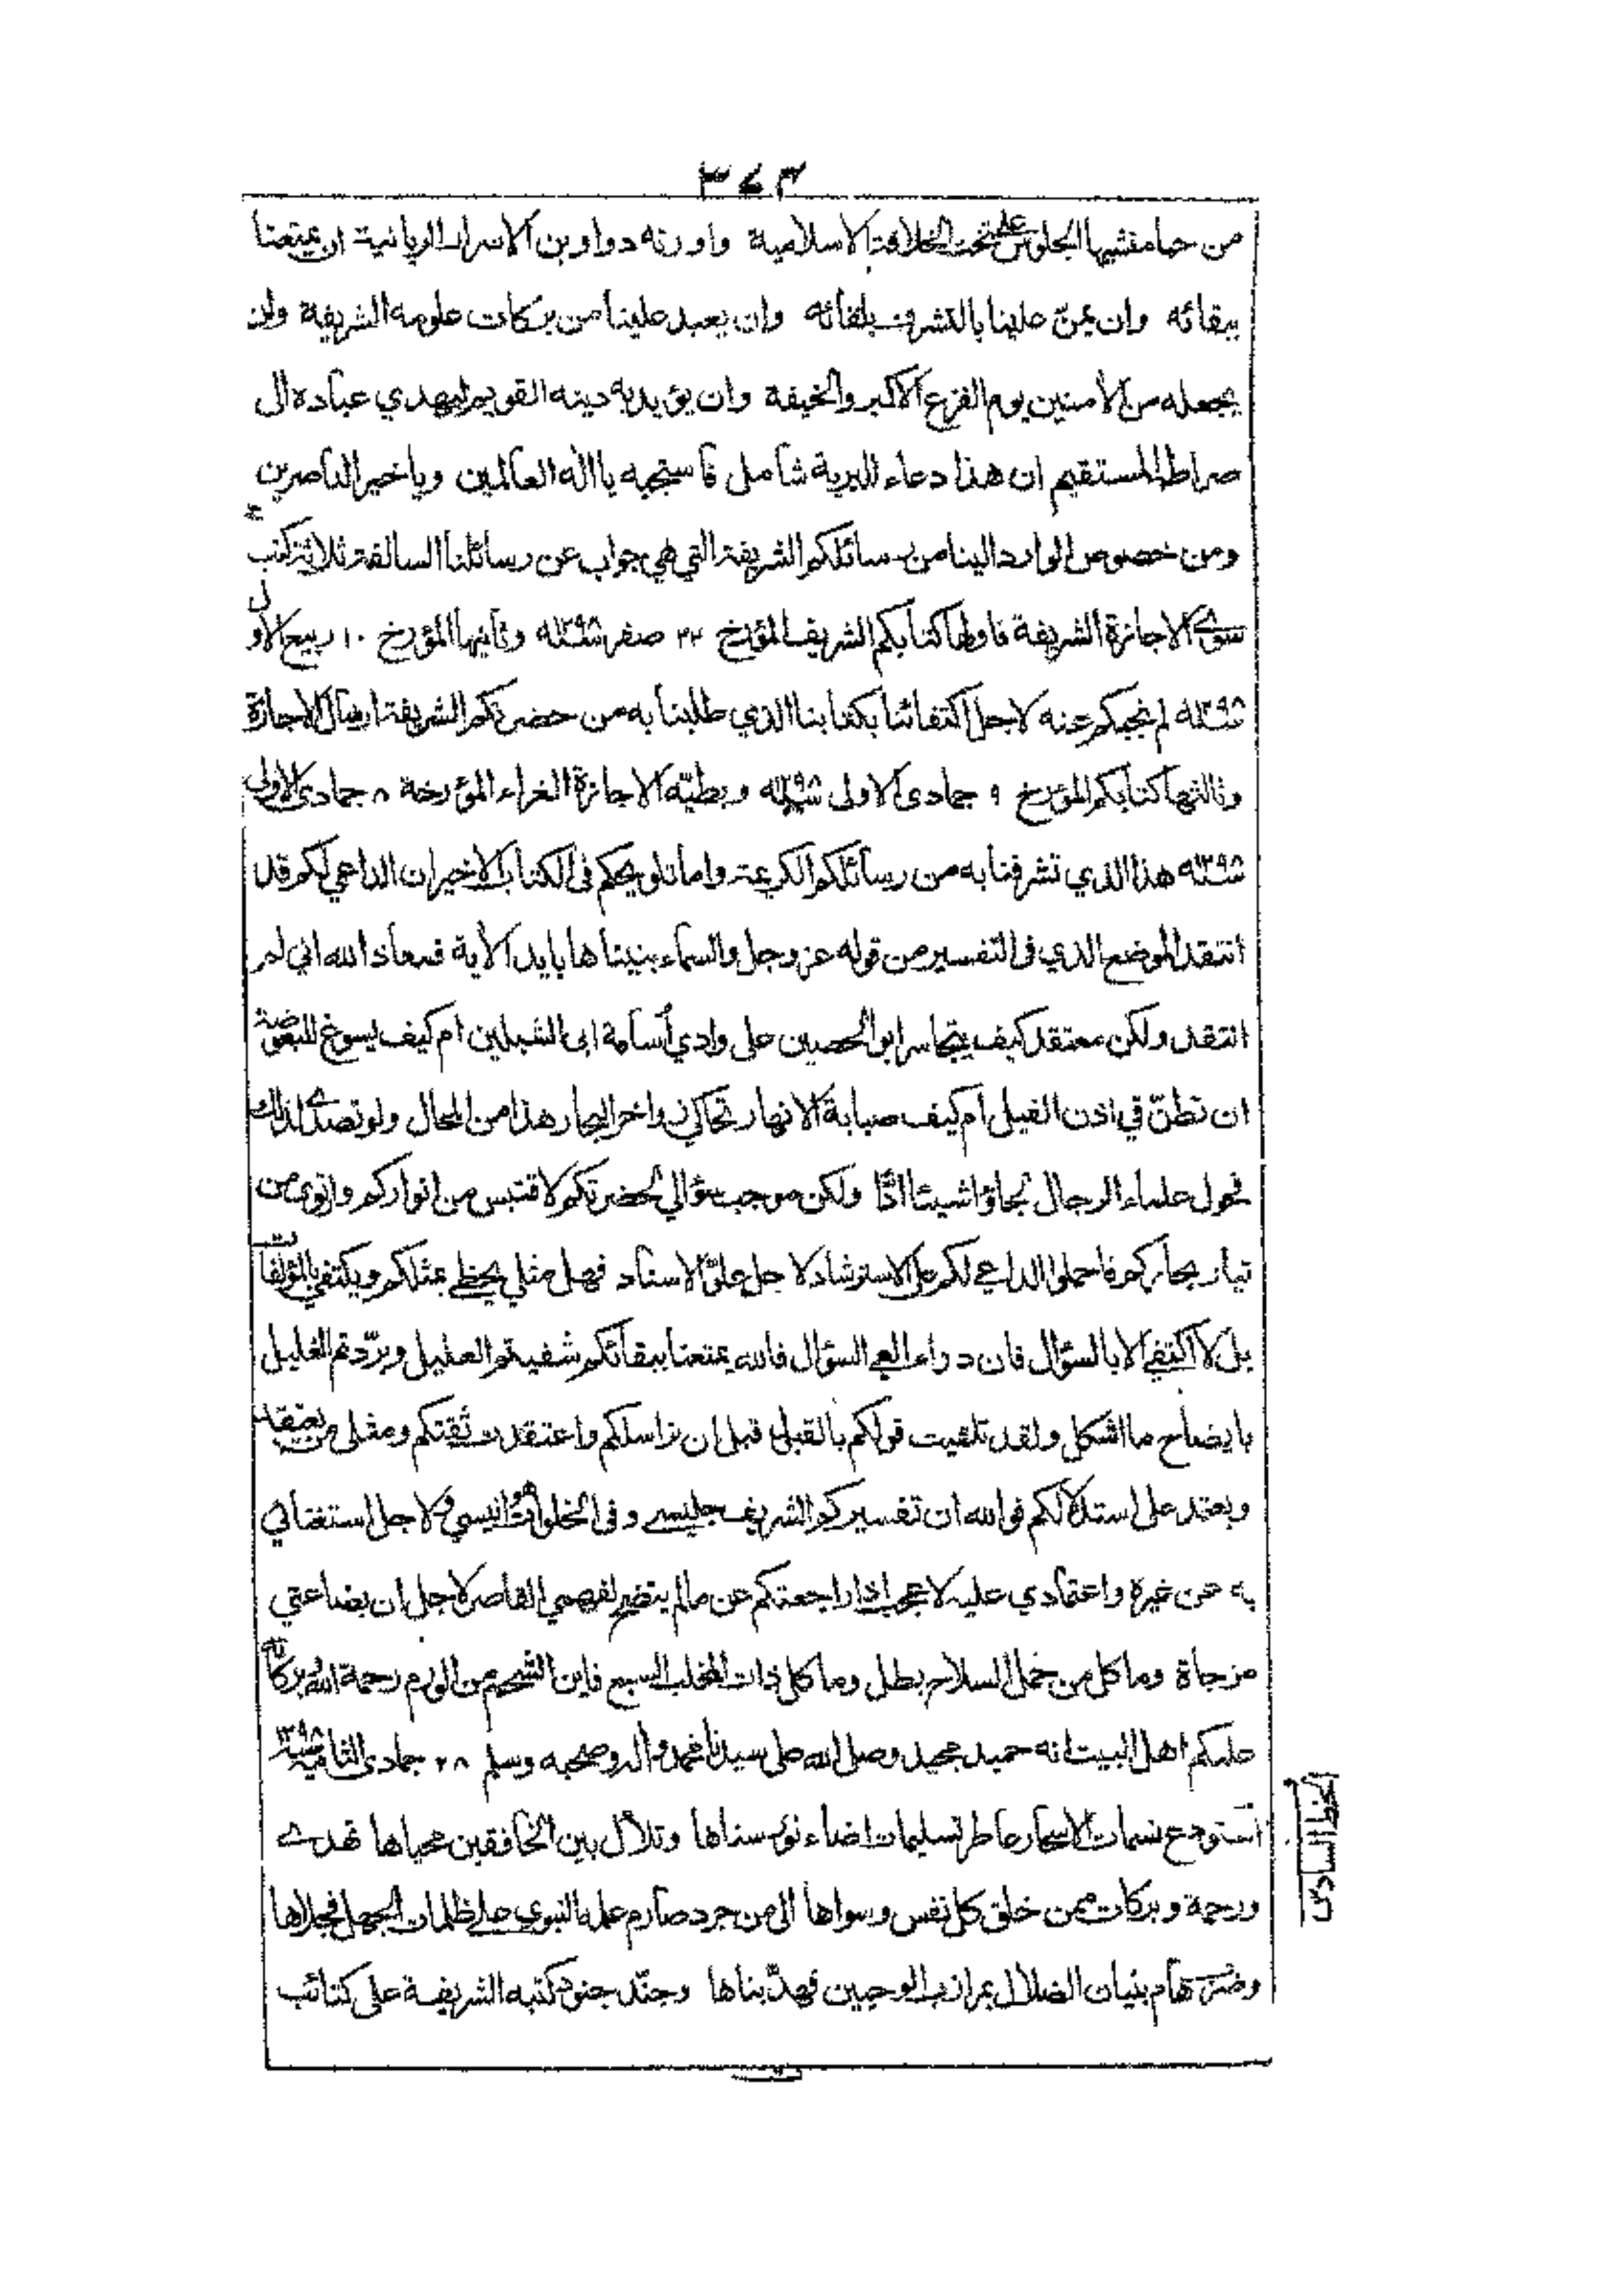 ٣٧٣
من حيا مفشيها الجلوس على تخت الخلافة الاسلامية واورثه دواوين الاسرار الربانية ان يمتعنا
ببقائه وان يمنّ علينا بالتشرف بلقائه وان يعيد علينا من بركات علومه الشريفة وان
يجعله من الأمنين يوم الفزع الاكبر والخيفة وان يؤيد به دينه القويم ليهدي عباده الى
صراط المستقيم ان هذا دعاء للبرية شامل فاستجبه يا اله العالمين ويا خير الناصرين
ومن خصوص الوارد الينا من رسائلكم الشريفة التي هي جواب عن رسائلنا السالفة ثلاثة كتب
سوى الاجازة الشريفة فاولها كتابكم الشريف المؤرخ ٢٢ صفر سنة ١٢٩٥ه وثانيها المؤرخ ١٠ ربيع الاول
سنة ١٢٩٥ه لم نجبكم عنه لاجل اكتفائنا بكتابنا الذي طلبنا به من حضرتكم الشريفة ارسال الاجازة
وثالثها كتابكم المؤرخ ٩ جمادى الاولى سنة ١٢٩٥ه وبطيّه الاجازة الغراء المؤرخة ٨ جمادى الاولى
سنة ١٢٩٥ه هذا الذي تشرفنا به من رسائلكم الكريمة واما تلويحكم فى الكتاب الاخير ان الداعي لكم قد
انتقد الموضع الذي فى التفسير من قوله عز وجل والسماء بنيناها بايد الأية فمعاذ الله اني لم
انتقد ولكن معتقد كيف يتجاسر ابو الحصين على وادي أسامة ابى الشبلين ام كيف يسوغ للبعوضة
ان تطنّ في اذن الفيل ام كيف صبابة الانهار تحاكي زواخر البحار هذا من المحال ولو تصدى لذلك
فحول علماء الرجال لجاؤا شيئا ادًّا ولكن موجب سؤالي لحضرتكم لاقتبس من انواركم وارتوى من
تيار بحاركم فاحملوا الداعي لكم على الاسترشاد لا جل علوّ الاسناد فهل مثلي يحظى بمثلكم ويكتفي بالمؤلفات
بل لا اكتفي الا بالسؤال فان دواء العي السؤال فالله يمتعنا ببقائكم شفيتم العليل وبرّدتم الغليل
بايضاح ما اشكل ولقد تلقيت قولكم بالقبول قبل ان نراسلكم واعتقد وثقتكم ومثلى من يعتقد
ويعتمد على استدلالكم فوالله ان تفسيركم الشريف جليسى وفى الخلوات انيسي ولا جل استغنائي
به عن غيره واعتمادي عليه لا عجب اذا راجعتكم عن مالم يتضح لفهمي القاصر لاجل ان بضاعتي
مزجاة وما كل من حمل السلاح بطل وما كل ذات المخلب السبع فاين الشحم من الورم رحمة الله وبركاته
عليكم اهل البيت انه حميد مجيد وصلى الله على سيدنا محمد واله وصحبه وسلم ٢٨ جمادى الثانية سنة ١٢٩٥
الخط السادس
استودع نسمات الاسحار عاطر تسليمات اضاء نور سناها وتلألأ بين الخافقين محياها تهدى
ورحمة وبركات ممن خلق كل نفس وسواها الى من جرد صارم علمه النبوي على ظلمات الجهل فجلاها
وضرب هام بنيان الضلال بمرازب الوحيين فهدّ بناها وجنّد جنود كتبه الشريفة على كتائب